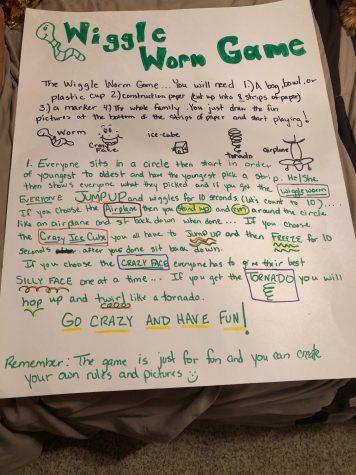 Wiggle
Worm Game
The Wiggle Worm Game... You will need 1.) A bag, bowl, or
plastic cup 2.) construction paper (cut up into 8 strips of paper)
3.) a marker 4.) The whole family. You just draw the fun
pictures at the bottom of the strips of paper and start playing!
Worm Crazy Face ice-cube Tornado airplane
1. Everyone sits in a circle then start in order
of youngest to oldest and have the youngest pick a strip. He/She
then shows everyone what they picked and if you get the Wiggle worm
EVERYONE JUMP UP and wiggles for 10 seconds. (Let's count to 10)....
If you choose the Airplane then you stand up and run around the circle
like an airplane and sit back down when done.... If you choose
the Crazy Ice Cube you all have to Jump up and then FREEZE for 10
Seconds after your done sit back down.
If you choose the CRAZY FACE everyone has to give their best
SILLY FACE one at a time... If you get the TORNADO you will
hop up and twirl like a tornado.
GO CRAZY AND HAVE FUN!
Remember: The game is just for fun and you can create
your own rules and pictures